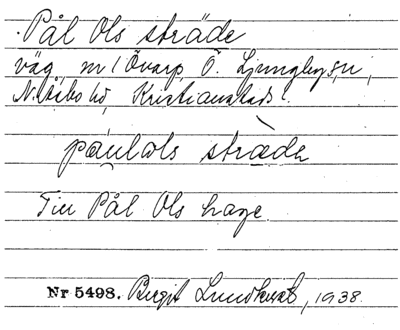 Pål Ols sträde
väg, m/Övarp, Ö. Ljungby sn,
N. Åsbo hd, Kristianstads l.
pǻulols strä̀de
Till Pål Ols hage.
Nr 5498. Birgit Lundkvist, 1938.